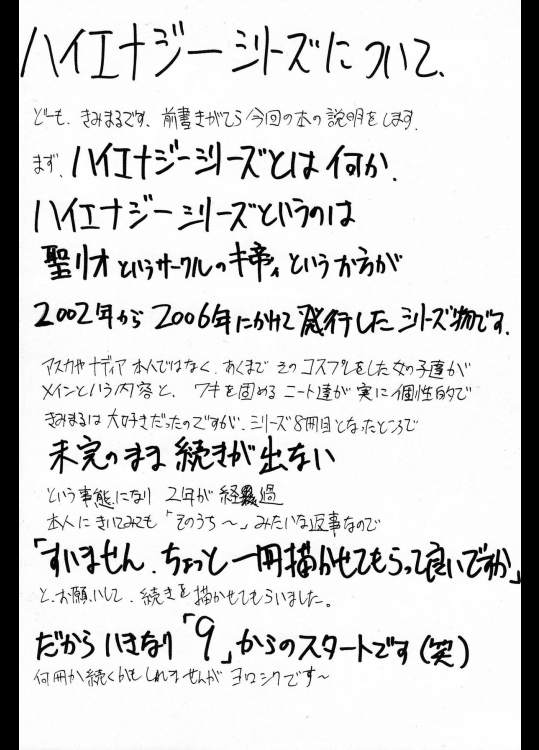 ハイエナジーシリーズについて、
どーも、きみまるです、前書きがてら今回の本の説明をします、
まず、ハイエナジーシリーズとは何か、
ハイエナジーシリーズというのは
聖リオというサークルのキ帝。という方が
2002年から2006年にかけて発行したシリーズ物です、
アスカやナディア本人ではなく、あくまでそのコスプレをした女の子達が
メインという内容と、ワキを固めるニート達が実に個性的で
きみまるは大好きだったのですが、シリーズ8冊目となったところで
未完のまま続きが出ない
という事態になり2年が経過
本人にきいてみても「そのうち〜」みたいな返事なので
「すいません、ちょっと一冊描かせてもらって良いですか」
と、お願いして、続きを描かせてもらいました。
だからいきなり「9」からのスタートです(笑)
何冊か続くかもしれませんがヨロシクです〜